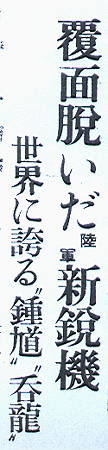 覆面脱いだ陸軍新鋭機
世界に誇る〝鍾馗〟〝呑龍〟